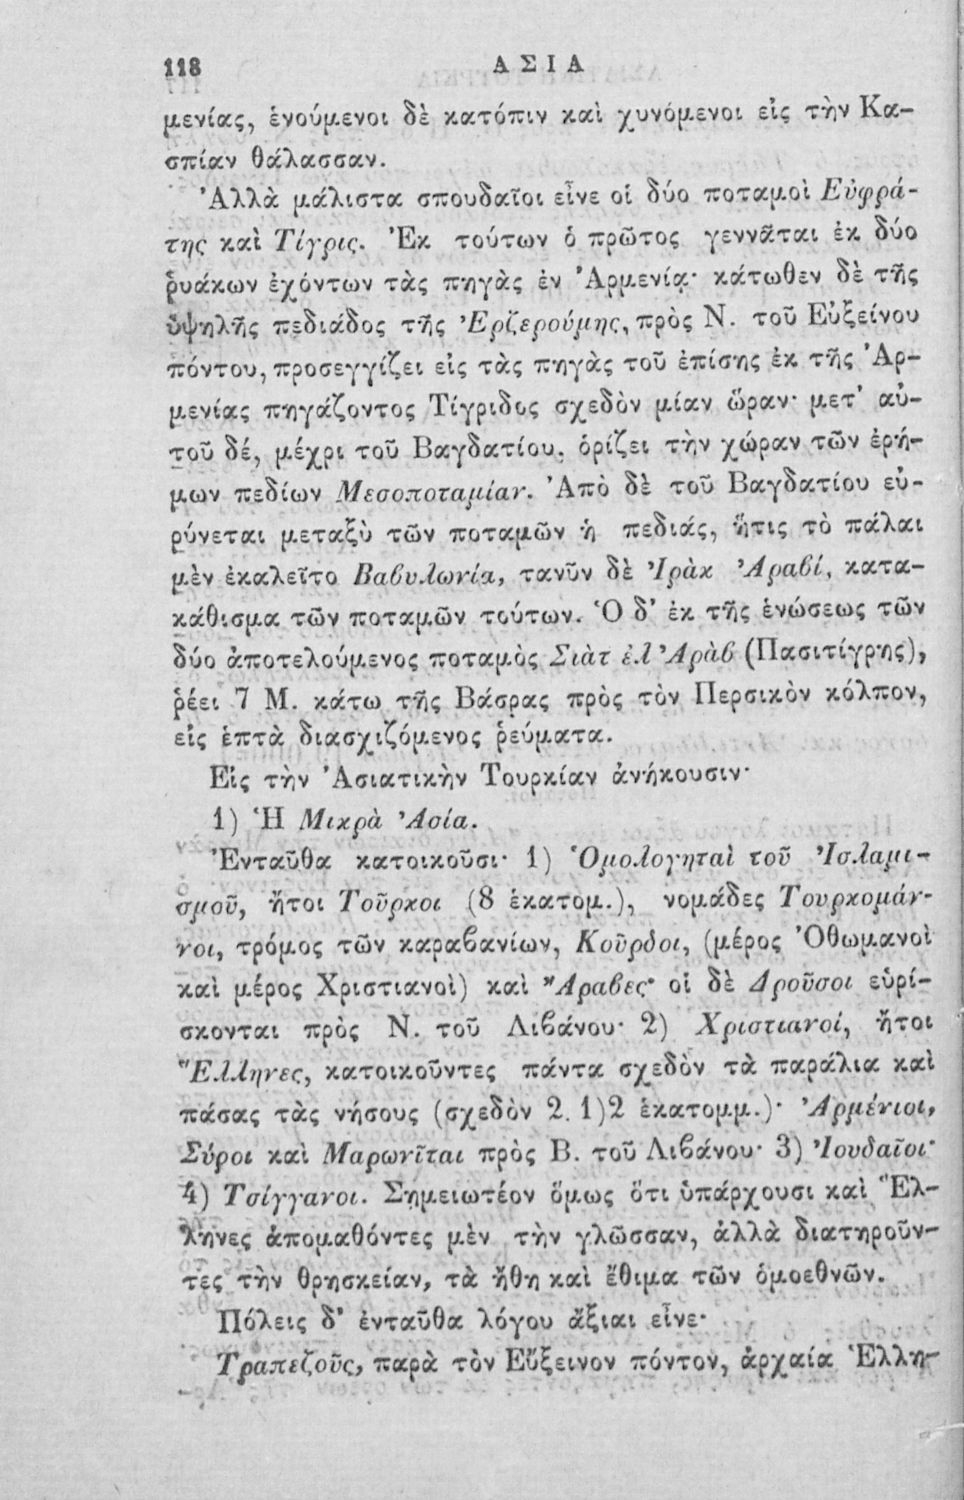 118 ΑΣΙΑ
μενίας, ἑνούμενοι δὲ κατόπιν καὶ χυνόμενοι εἰς τὴν Κα-
σπίαν θάλασσαν.
Ἀλλὰ μάλιστα σπουδαῖοι εἶνε οἱ δύο ποταμοὶ Εὐφρά-
της καὶ Τίγρις. Ἐκ τούτων ὁ πρῶτος γεννᾶται ἐκ δύο
ῥυάκων ἐχόντων τὰς πηγὰς ἐν Ἀρμενίᾳ· κάτωθεν δὲ τῆς
ὑψηλῆς πεδιάδος τῆς Ἐρζερούμης, πρὸς Ν. τοῦ Εὐξείνου
πόντου, προσεγγίζει εἰς τὰς πηγὰς τοῦ ἐπίσης ἐκ τῆς Ἀρ-
μενίας πηγάζοντος Τίγριδος σχεδὸν μίαν ὥραν· μετ' αὐ-
τοῦ δέ, μέχρι τοῦ Βαγδατίου, ὁρίζει τὴν χώραν τῶν ἐρή-
μων πεδίων Μεσοποταμίαν. Ἀπὸ δὲ τοῦ Βαγδατίου εὐ-
ρύνεται μεταξὺ τῶν ποταμῶν ἡ πεδιάς, ἥτις τὸ πάλαι
μὲν ἐκαλεῖτο Βαβυλωνία, τανῦν δὲ Ἰρὰκ Ἀραβί, κατα-
κάθισμα τῶν ποταμῶν τούτων. Ὁ δ' ἐκ τῆς ἑνώσεως τῶν
δύο ἀποτελούμενος ποταμὸς Σιὰτ ἐλ Ἀρὰβ (Πασιτίγρης),
ῥέει 7 Μ. κάτω τῆς Βάσρας πρὸς τὸν Περσικὸν κόλπον,
εἰς ἑπτὰ διασχιζόμενος ῥεύματα.
Εἰς τὴν Ἀσιατικὴν Τουρκίαν ἀνήκουσιν·
1) Ἡ Μικρὰ Ἀσία.
Ἐνταῦθα κατοικοῦσι· 1) Ὁμολογηταὶ τοῦ Ἰσλαμι-
σμοῦ, ἤτοι Τοῦρκοι (8 ἑκατομ.), νομάδες Τουρκομάν-
νοι, τρόμος τῶν καραβανίων, Κοῦρδοι, (μέρος Ὀθωμανοὶ
καὶ μέρος Χριστιανοὶ) καὶ Ἄραβες· οἱ δὲ Δροῦσοι εὑρί-
σκονται πρὸς Ν. τοῦ Λιβάνου· 2) Χριστιανοί, ἤτοι
Ἕλληνες, κατοικοῦντες πάντα σχεδὸν τὰ παράλια καὶ
πάσας τὰς νήσους (σχεδὸν 2. 1)2 ἑκατομμ.)· Ἀρμένιοι,
Σύροι καὶ Μαρωνῖται πρὸς Β. τοῦ Λιβάνου· 3) Ἰουδαῖοι·
4) Τσίγγανοι. Σημειωτέον ὅμως ὅτι ὑπάρχουσι καὶ Ἕλ-
ληνες ἀπομαθόντες μὲν τὴν γλῶσσαν, ἀλλὰ διατηροῦν-
τες τὴν θρησκείαν, τὰ ἤθη καὶ ἔθιμα τῶν ὁμοεθνῶν.
Πόλεις δ' ἐνταῦθα λόγου ἄξιαι εἶνε·
Τραπεζοῦς, παρὰ τὸν Εὔξεινον πόντον, ἀρχαία Ἑλλη-